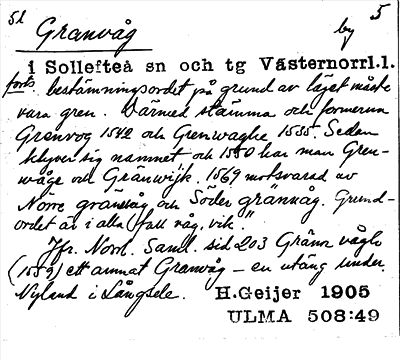 51
5
Granvåg
by
i Sollefteå sn och tg Västernorrl.l.
forts. bestämningsordet på grund av läget måste
vara gren. Därmed stämma och formerna
Grenvog 1542 och Grenwaghe 1535. Sedan
klyver sig namnet och 1550 har man Gren-
wåge och Granwijk. 1569 motsvarad av
Norre granvåg och Söder gränvåg. Grund-
ordet är i alla fall våg, vik."
Jfr. Nord. Saml. sid 203 Gräne
(1559) ett annat Granvåg – en utäng under
Nyland i Långsele.
H.Geijer 1905
ULMA 508:49